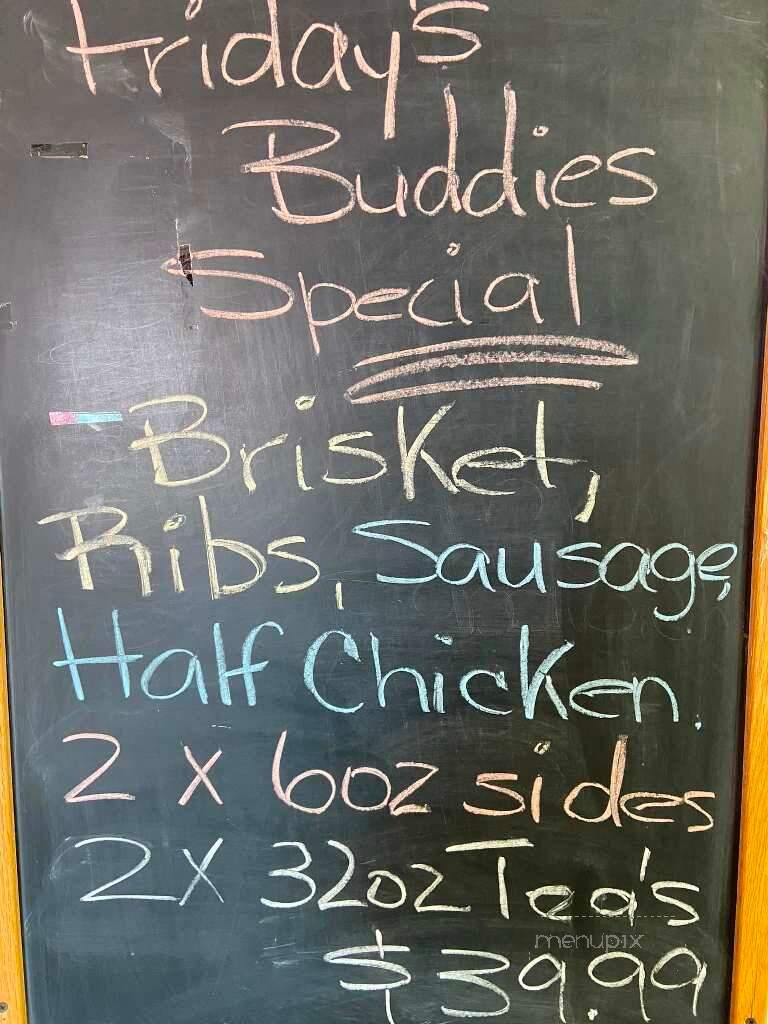 Friday's
Buddies
Special
Brisket,
Ribs, Sausage,
Half Chicken.
2 x 6oz sides
2x 32oz Tea's
menupix
$39.99